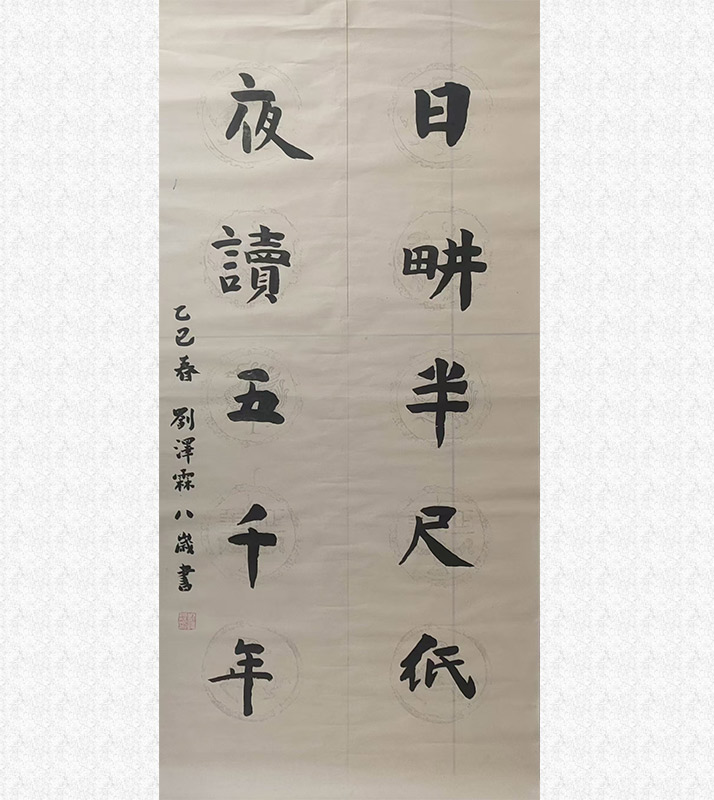 日畊半尺紙
夜讀五千年
乙巳春 劉澤霖八歲書